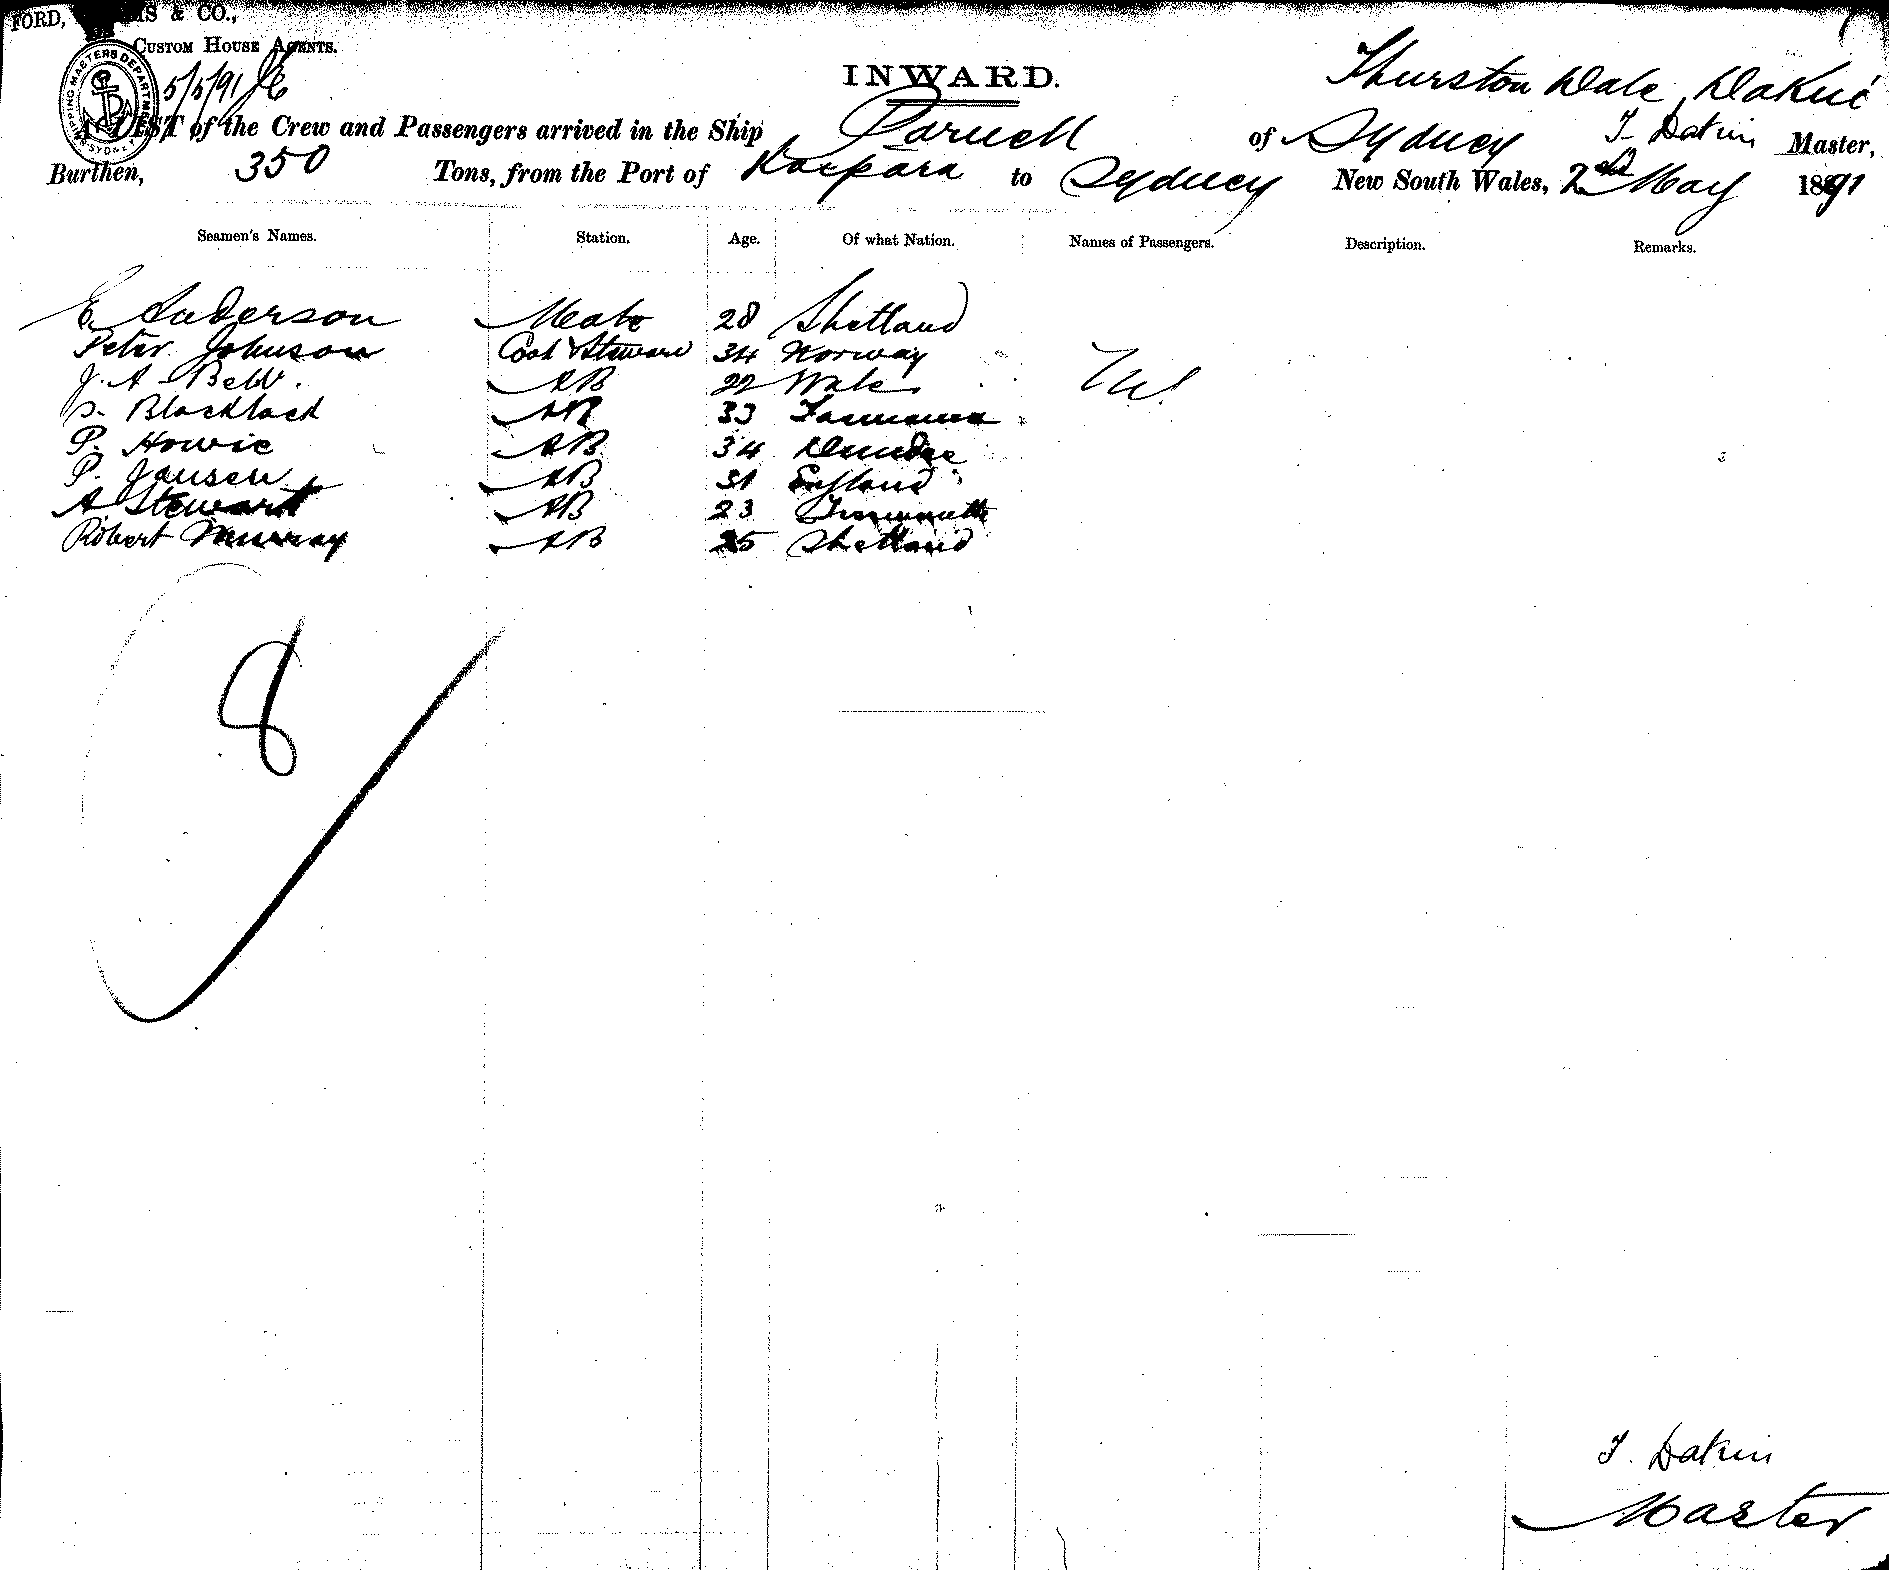 FORD, & CO.,
CUSTOM HOUSE AGENTS.
SHIPPING MASTERS DEPARTMENT SYDNEY
5/5/91
INWARD.
Thurston Dale Dakin
A LIST of the Crew and Passengers arrived in the Ship Parnell of Sydney T. Dakin Master,
Burthen, 350 Tons, from the Port of Kaipara to Sydney New South Wales, 2nd May 1891
Seamen's Names. Station. Age. Of what Nation. Names of Passengers. Description. Remarks.
E. Anderson Mate 28 Shetland
Peter Johnson Cook & Steward 34 Norway
J. A. Bell. AB 22 Wales Nil
Blacklock AB 33 Tasmania
P. Howie AB 34 Dundee
P. Jansen AB 31 England
A Stewart AB 23
Robert Murray AB 25 Shetland
8
T. Dakin
Master